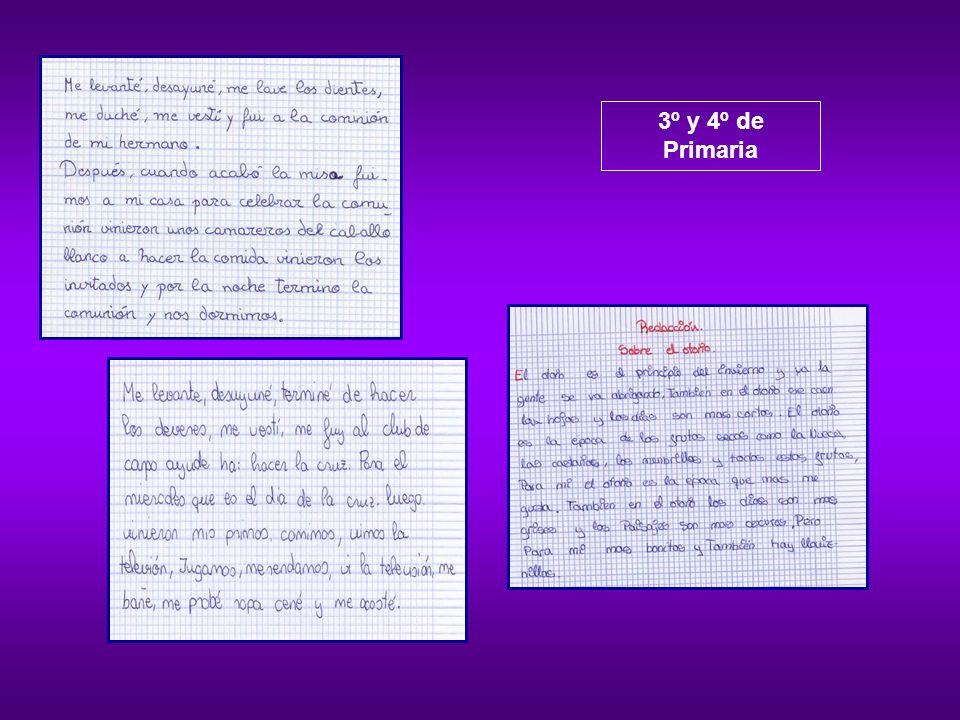 Me levanté, desayuné, me lave los dientes,
me duché, me vestí y fui a la cominión
de mi hermano.
Después, cuando acabó la misa fui-
mos a mi casa para celebrar la comu-
nión vinieron unos camareros del caballo
llanco a hacer la comida vinieron los
invitados y por la noche termino la
comunión y nos dormimos.
3º y 4º de
Primaria
Me levante, desayuné, terminé de hacer
los deveres, me vestí, me fuy al club de
campo ayude ha: hacer la cruz. Para el
miercoles que es el día de la cruz. luego
vinieron mis primos, comimos, vimos la
televisión, Jugamos, merendamos, vi la televisión, me
bañe, me probé ropa cené y me acosté.
Redacción.
Sobre el otoño.
El otoño es el principio del invierno y va la
gente se va abrigando. Tambien en el otoño se caen
las hojas y los días son mas cortos. El otoño
es la época de los frutos secos como la Nuece,
las castañas, los menbrillos y todos estos frutos,
Para mi el otoño es la época que mas me
gusta. Tambien en el otoño los dias son mas
grises y los Paisajes son mas oscuros, Pero
Para mi mas bonitos y Tambien hay lloviz-
nillas.